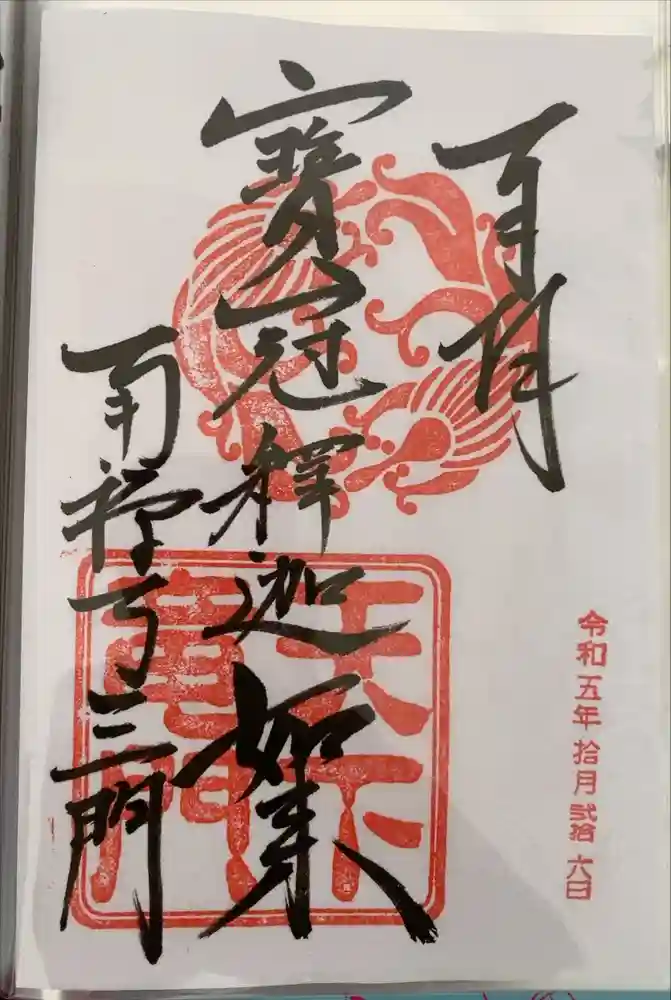 寶冠釋迦如来
南禅寺三門
天下竜門
令和五年拾月弐拾六日